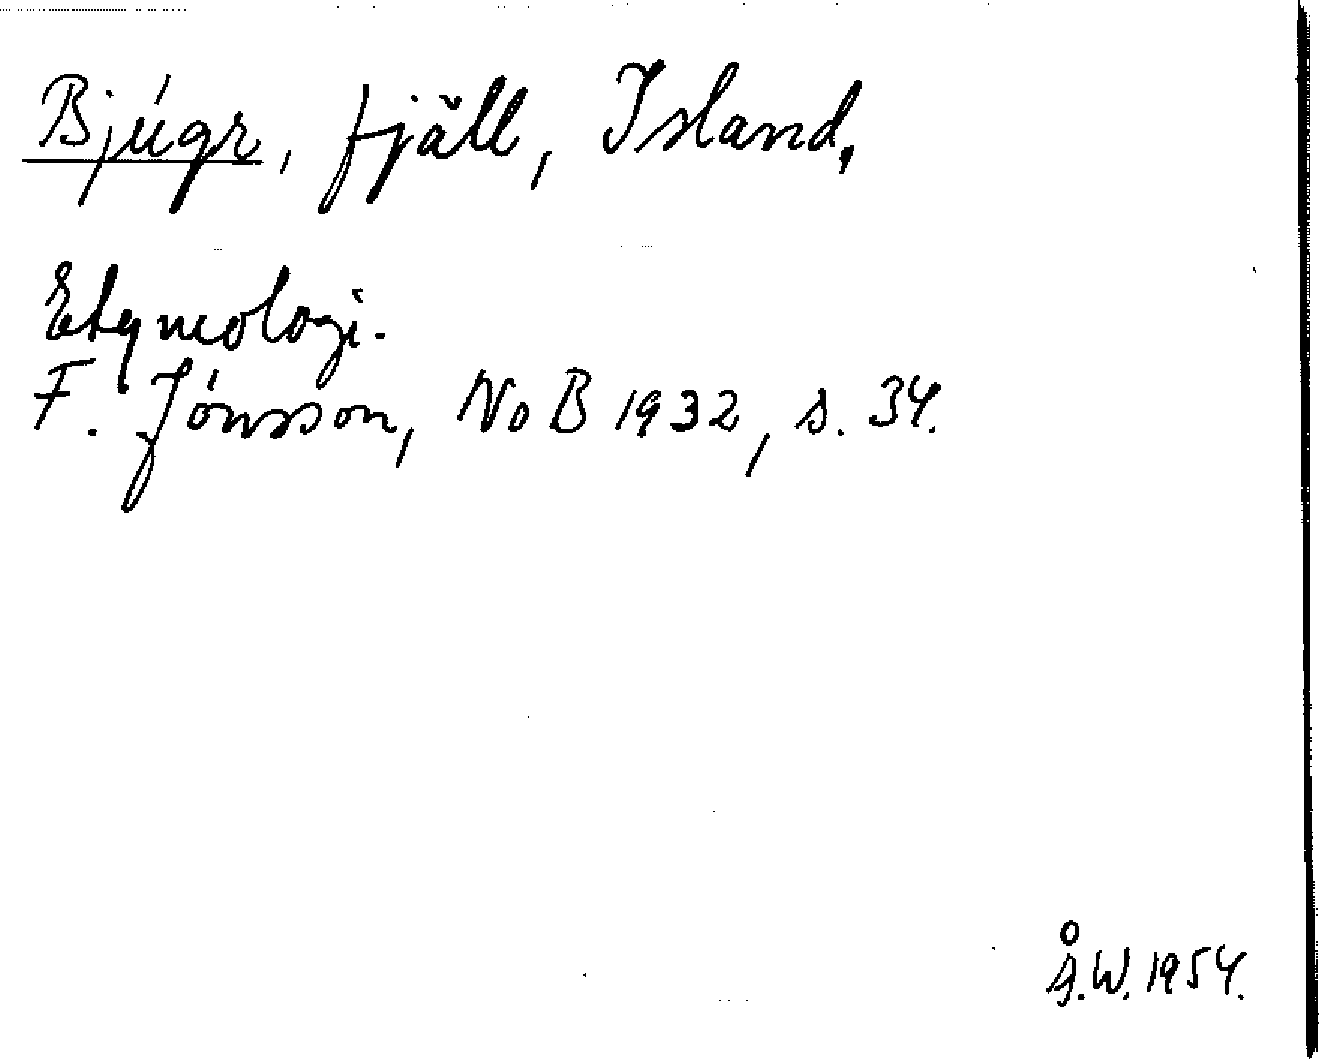 Bjúgr, fjäll, Island.
Etymologi.
F. Jónsson, NoB 1932, s. 34.
Å.W. 1954.